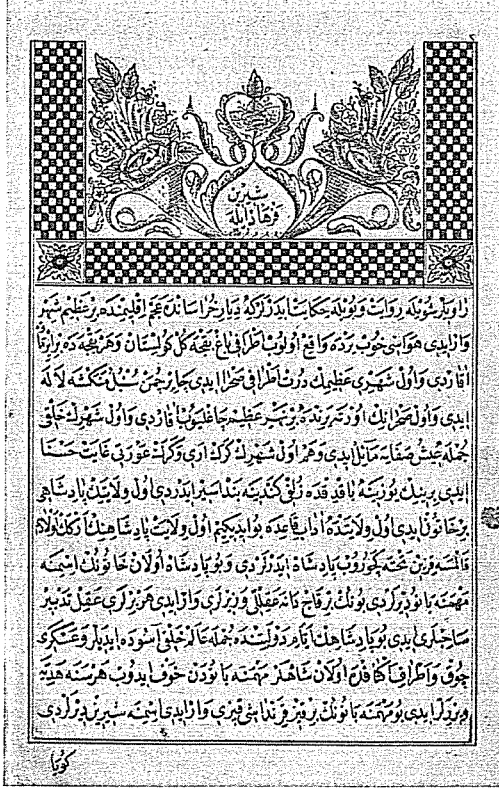 شيرين
فرهاد ايله
راويلر شويله روايت و بويله حكايت ايدرلر كه ديار خراسانك عجم اقليمنده بر عظيم شهر
وار ايدى هواسى خوب يرده واقع اولوب اطرافى باغ بقچه كل كولستان و هر بقچه ده بر ايرماق
اقاردى و اول شهرى عظيمك درت اطرافى صحرا ايدى جاير چمن سنبل منكشه لاله
ايدى و اول صحرانك اورته يرنده بر نهر عظيم چاغليوب اقاردى و اول شهرك خلقى
جمله عيش صفايه مائل ايدى و هم اول شهرك كرك ارى و كرك عورتى غايت حسنا
ايدى برينك يوزينه باقدقده زلفى كندينه بند اسير ايدردى اول ولايتك پادشاهى
بر خاتون ايدى اول ولايتده اداب قاعده بو ايديكيم اول ولايت پادشاهنك اركك اولادى
قالمسه قزين تخته كچوروب پادشاه ايدرلردى و بو پادشاه اولان خاتونك اسمينه
مهمنه بانو ديرلردى بونك بر قاچ دانه عقللى وزيرلرى وار ايدى هر بزلرى عقل تدبير
صاحبلرى ايدى بو پادشاهك ايام دولتنده جمله عالم خلقى اسوده ايديلر و عسكرى
چوق و اطرافى اكا قدم اولان شاهلر مهمنه بانودن خوف ايدوب هر سنه هديه
ويررلر ايدى بو مهمنه بانونك بر قيز قرنداشى قيزى وار ايدى اسمينه شيرين ديرلردى
كويا